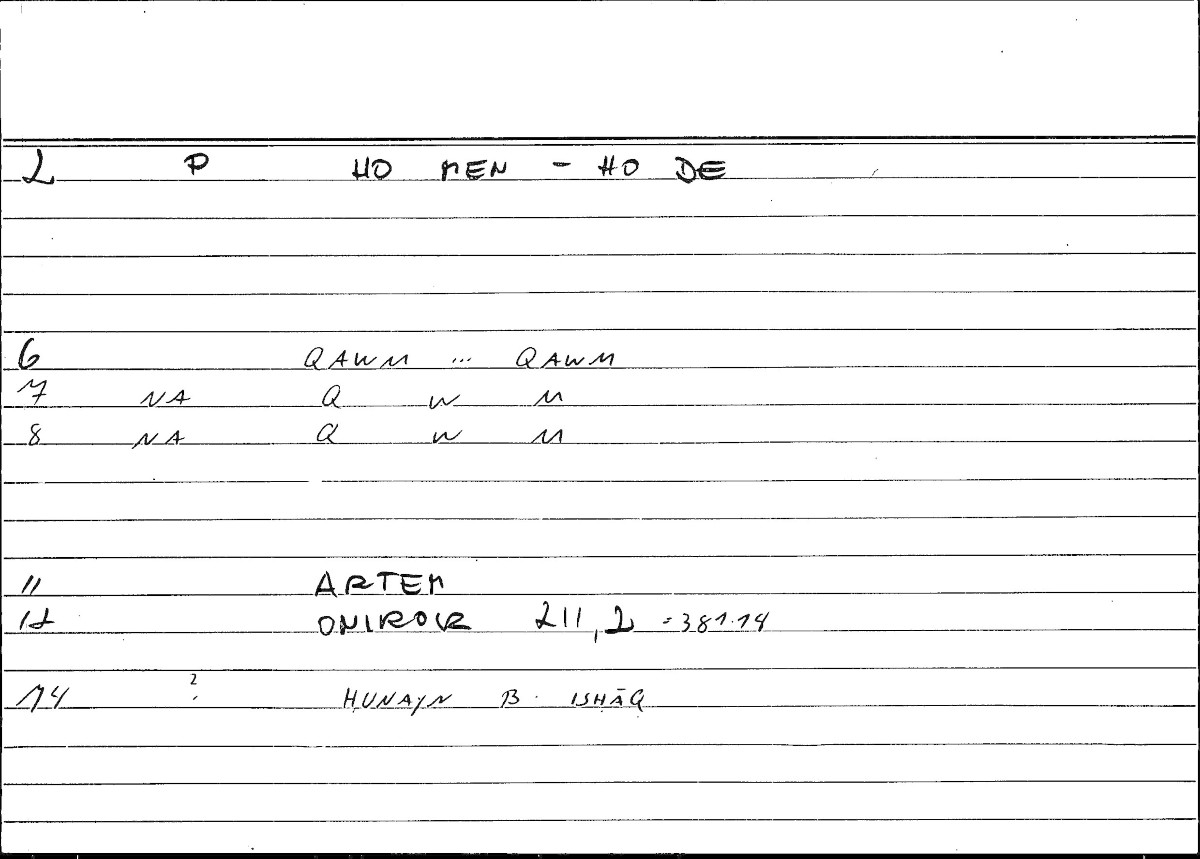 2 P HO MEN - HO DE
6 QAWM ... QAWM
7 NA Q W M
8 NA Q W M
11 ARTEM
12 ONIROCR 211,2 = 381.14
14 ? ḤUNAYN B. ISḤĀQ